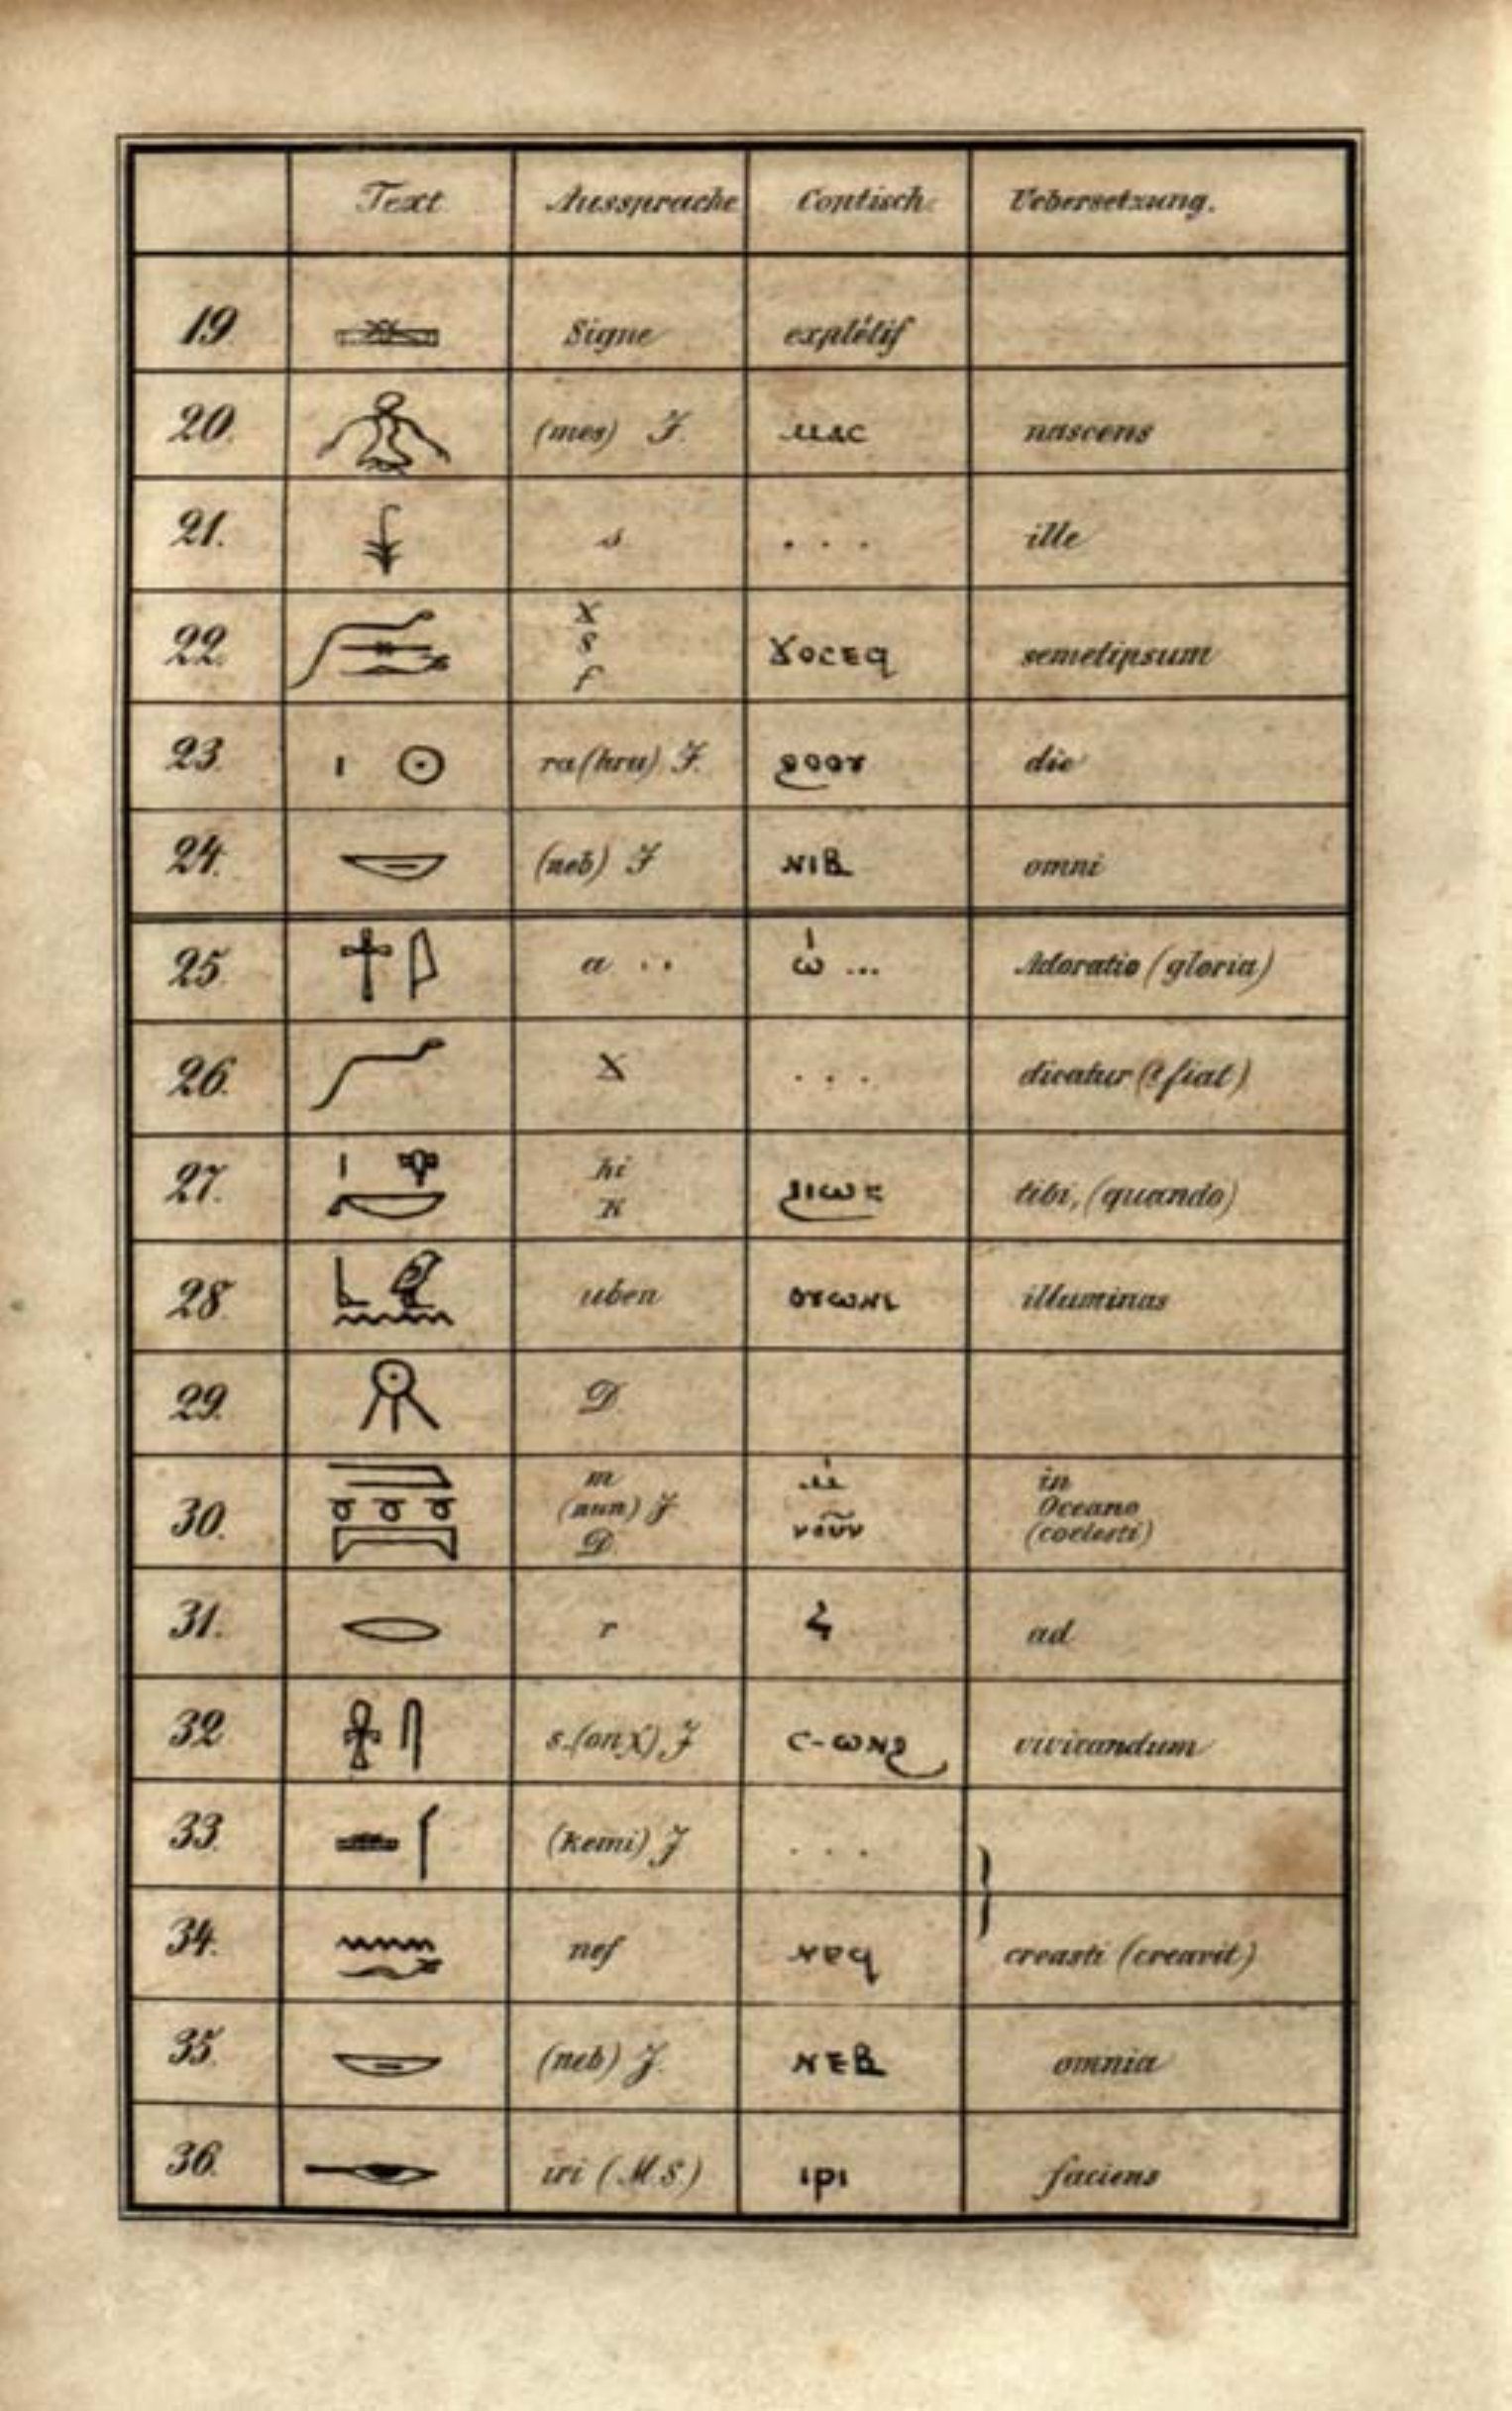 Text Aussprache Coptisch Uebersetzung.
19 Signe explétif
20. (mes) J. ⲙⲁⲥ nascens
21. s . . . ille
22. X
S
f ϫⲟⲥⲉϥ semetipsum
23. ra (hru) J. ϩⲟⲟⲩ die
24. (neb) J ⲛⲓⲃ omni
25. a . . ⲱ ... Adoratio (gloria)
26. X . . . dicatur (? fiat)
27. hi
K ϩⲓⲱⲕ tibi, (quando)
28. uben ⲟⲩⲱⲛⲓ illuminas
29. D.
30. m
(nun) J
D. ⲙ̇
ⲛⲟⲩⲛ in
Oceano
(coelesti)
31. r ad
32 s-(onχ) J ⲥ-ⲱⲛϩ vivicandum
33. (Kemi) J . . .
34. nef ⲛⲉϥ creasti (creavit)
35. (neb) J. ⲛⲉⲃ omnia
36. iri (M.S.) ⲓⲣⲓ faciens